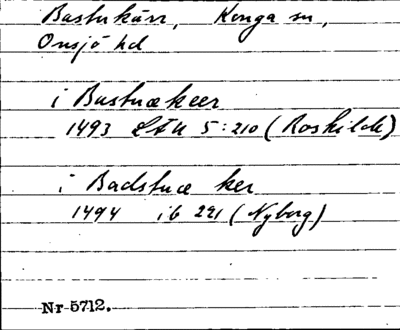 Bastukärr, Konga sn,
Onsjö hd
i Bastuækeer
1493 LÆU 5:210 (Roskilde)
i Badstuæ ker
1494 ib 221 (Nyborg)
Nr 5712.